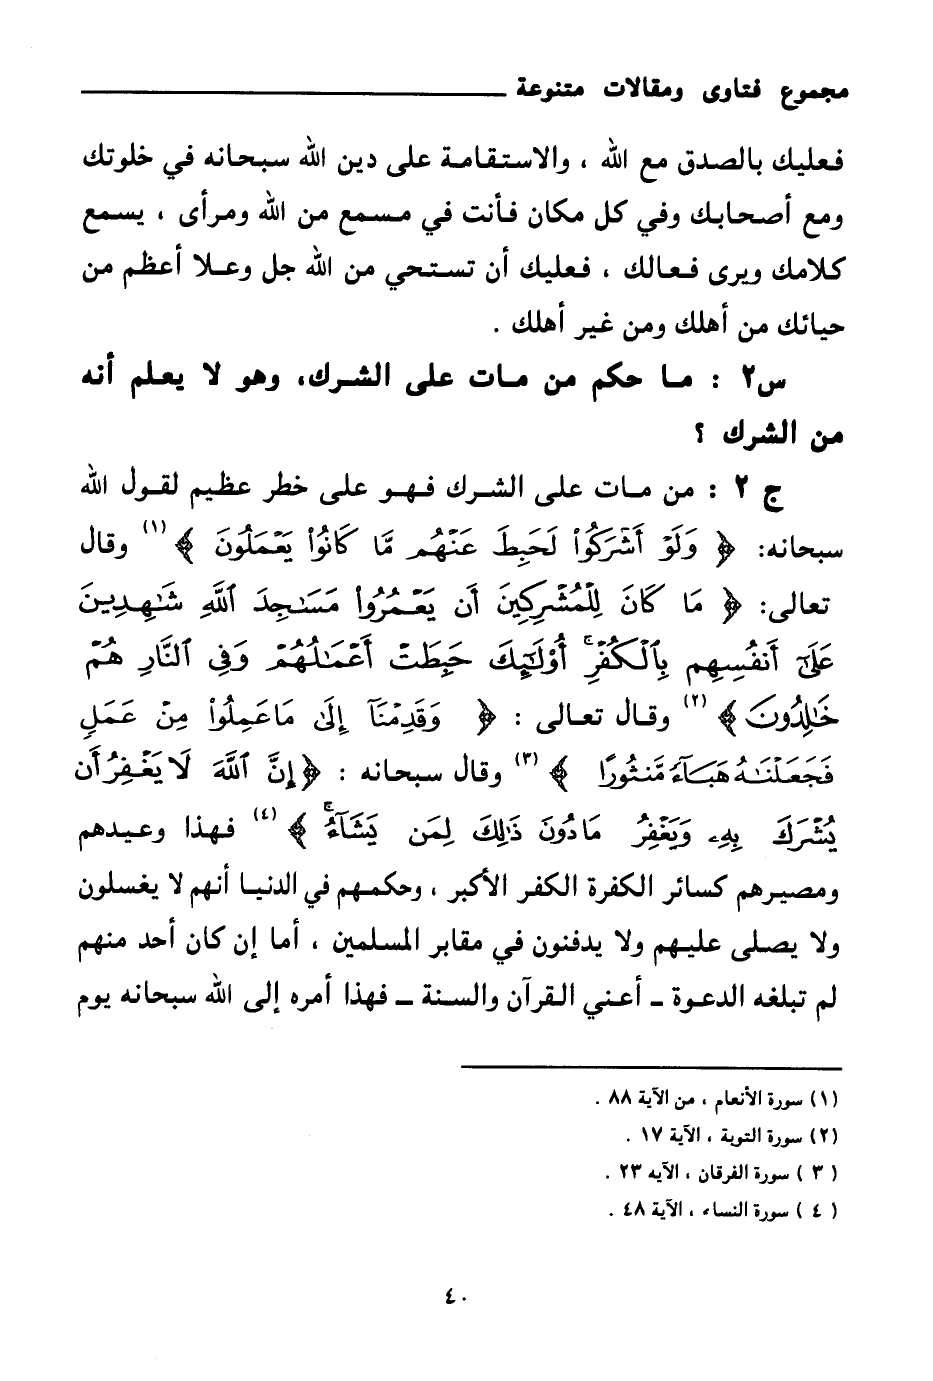 مجموع فتاوى ومقالات متنوعة
فعليك بالصدق مع الله ، والاستقامة على دين الله سبحانه في خلوتك
ومع أصحابك وفي كل مكان فأنت في مسمع من الله ومرأى ، يسمع
كلامك ويرى فعالك ، فعليك أن تستحي من الله جل وعلا أعظم من
حيائك من أهلك ومن غير أهلك .
س٢ : ما حكم من مات على الشرك، وهو لا يعلم أنه
من الشرك ؟
ج ٢ : من مات على الشرك فهو على خطر عظيم لقول الله
سبحانه: ﴿ وَلَوْ أَشْرَكُواْ لَحَبِطَ عَنْهُم مَّا كَانُواْ يَعْمَلُونَ ﴾(١) وقال
تعالى: ﴿ مَا كَانَ لِلْمُشْرِكِينَ أَن يَعْمُرُواْ مَسَٰجِدَ ٱللَّهِ شَٰهِدِينَ
عَلَىٰٓ أَنفُسِهِم بِٱلْكُفْرِ ۚ أُوْلَٰٓئِكَ حَبِطَتْ أَعْمَٰلُهُمْ وَفِى ٱلنَّارِ هُمْ
خَٰلِدُونَ ﴾(٢) وقال تعالى : ﴿ وَقَدِمْنَآ إِلَىٰ مَا عَمِلُواْ مِنْ عَمَلٍ
فَجَعَلْنَٰهُ هَبَآءً مَّنثُورًا ﴾(٣) وقال سبحانه : ﴿ إِنَّ ٱللَّهَ لَا يَغْفِرُ أَن
يُشْرَكَ بِهِۦ وَيَغْفِرُ مَا دُونَ ذَٰلِكَ لِمَن يَشَآءُ ۚ ﴾(٤) فهذا وعيدهم
ومصيرهم كسائر الكفرة الكفر الأكبر ، وحكمهم في الدنيا أنهم لا يغسلون
ولا يصلى عليهم ولا يدفنون في مقابر المسلمين ، أما إن كان أحد منهم
لم تبلغه الدعوة ـ أعني القرآن والسنة ـ فهذا أمره إلى الله سبحانه يوم
(١) سورة الأنعام ، من الآية ٨٨ .
(٢) سورة التوبة ، الآية ١٧ .
( ٣ ) سورة الفرقان ، الآيه ٢٣ .
( ٤ ) سورة النساء ، الآية ٤٨ .
٤٠